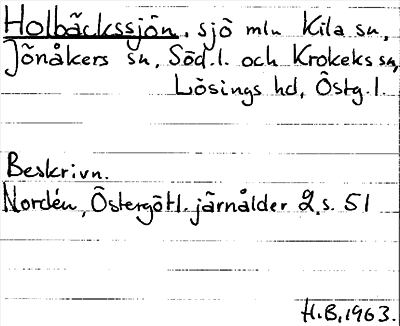 Holbäckssjön, sjö mln Kila sn,
Jönåkers sn, Söd.l. och Krokeks sn,
Lösings hd, Östg.l.
Beskrivn.
Nordén, Östergötl. järnålder 2, s. 51
H.B. 1963.